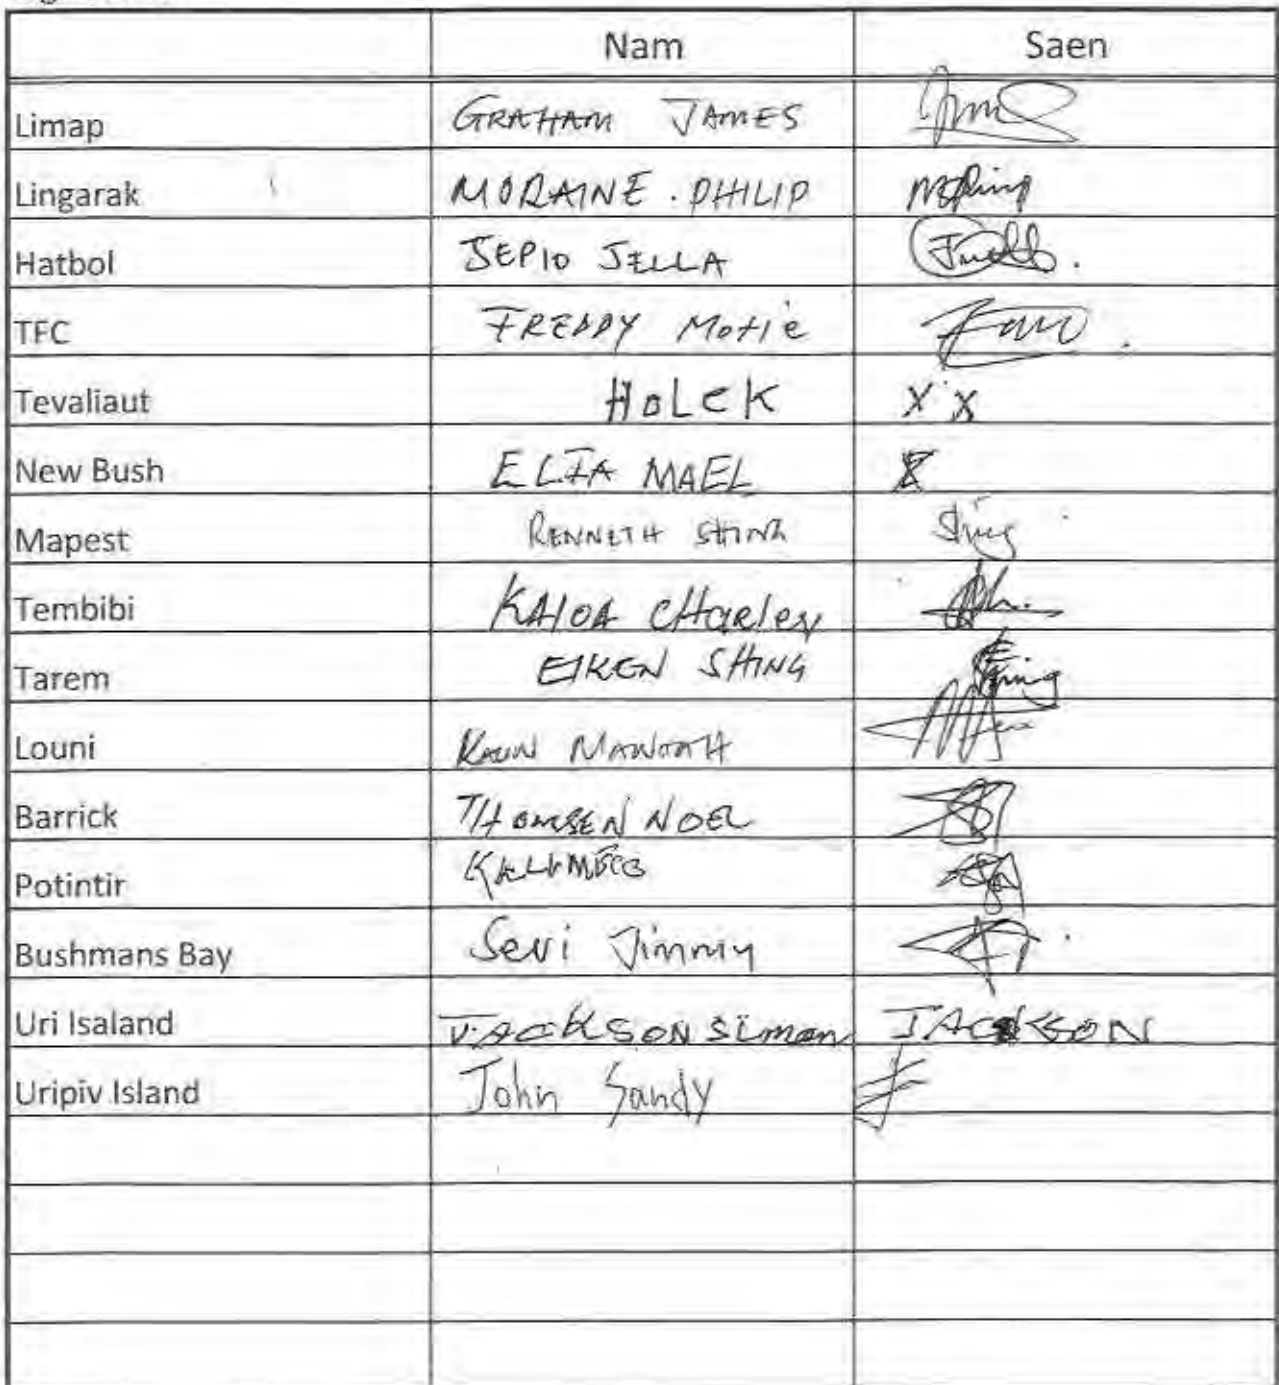 Nam Saen
Limap GRAHAM JAMES
Lingarak MORAINE . PHILIP
Hatbol SEPIO SELLA
TFC FREDDY Motie
Tevaliaut HOLEK X X
New Bush ELIA MAEL
Mapest RENNETH SHING Shing
Tembibi KALOA CHARley
Tarem EIKEN SHING
Louni
Barrick THOMSEN NOEL
Potintir
Bushmans Bay Sevi Jimmy
Uri Isaland JACKSON Simon JACKSON
Uripiv Island John Sandy